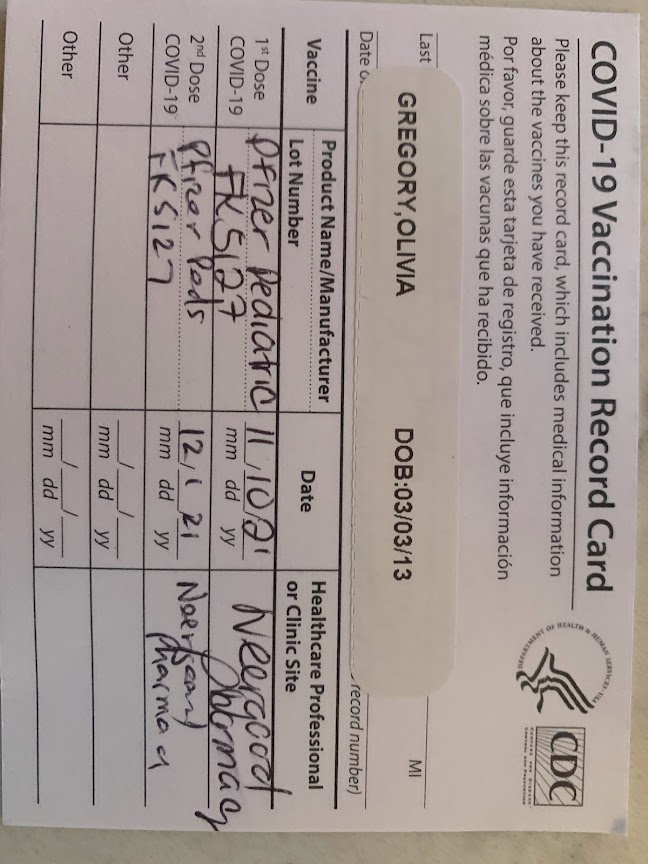 COVID-19 Vaccination Record Card
Please keep this record card, which includes medical information
about the vaccines you have received.
Por favor, guarde esta tarjeta de registro, que incluye información
médica sobre las vacunas que ha recibido.
DEPARTMENT OF HEALTH & HUMAN SERVICES. USA
CDC
CENTERS FOR DISEASE
CONTROL AND PREVENTION
Last
MI
GREGORY,OLIVIA DOB:03/03/13
Date
record number)
Vaccine
Product Name/Manufacturer
Lot Number
Date
Healthcare Professional
or Clinic Site
1st Dose
COVID-19
Pfizer Pediatric
FK5127
11/10/21
mm dd yy
Neergaard
Pharmacy
2nd Dose
COVID-19
Pfizer Peds
FK5127
12/1/21
mm dd yy
Neergaard
Pharmacy
Other
__/__/__
mm dd yy
Other
__/__/__
mm dd yy